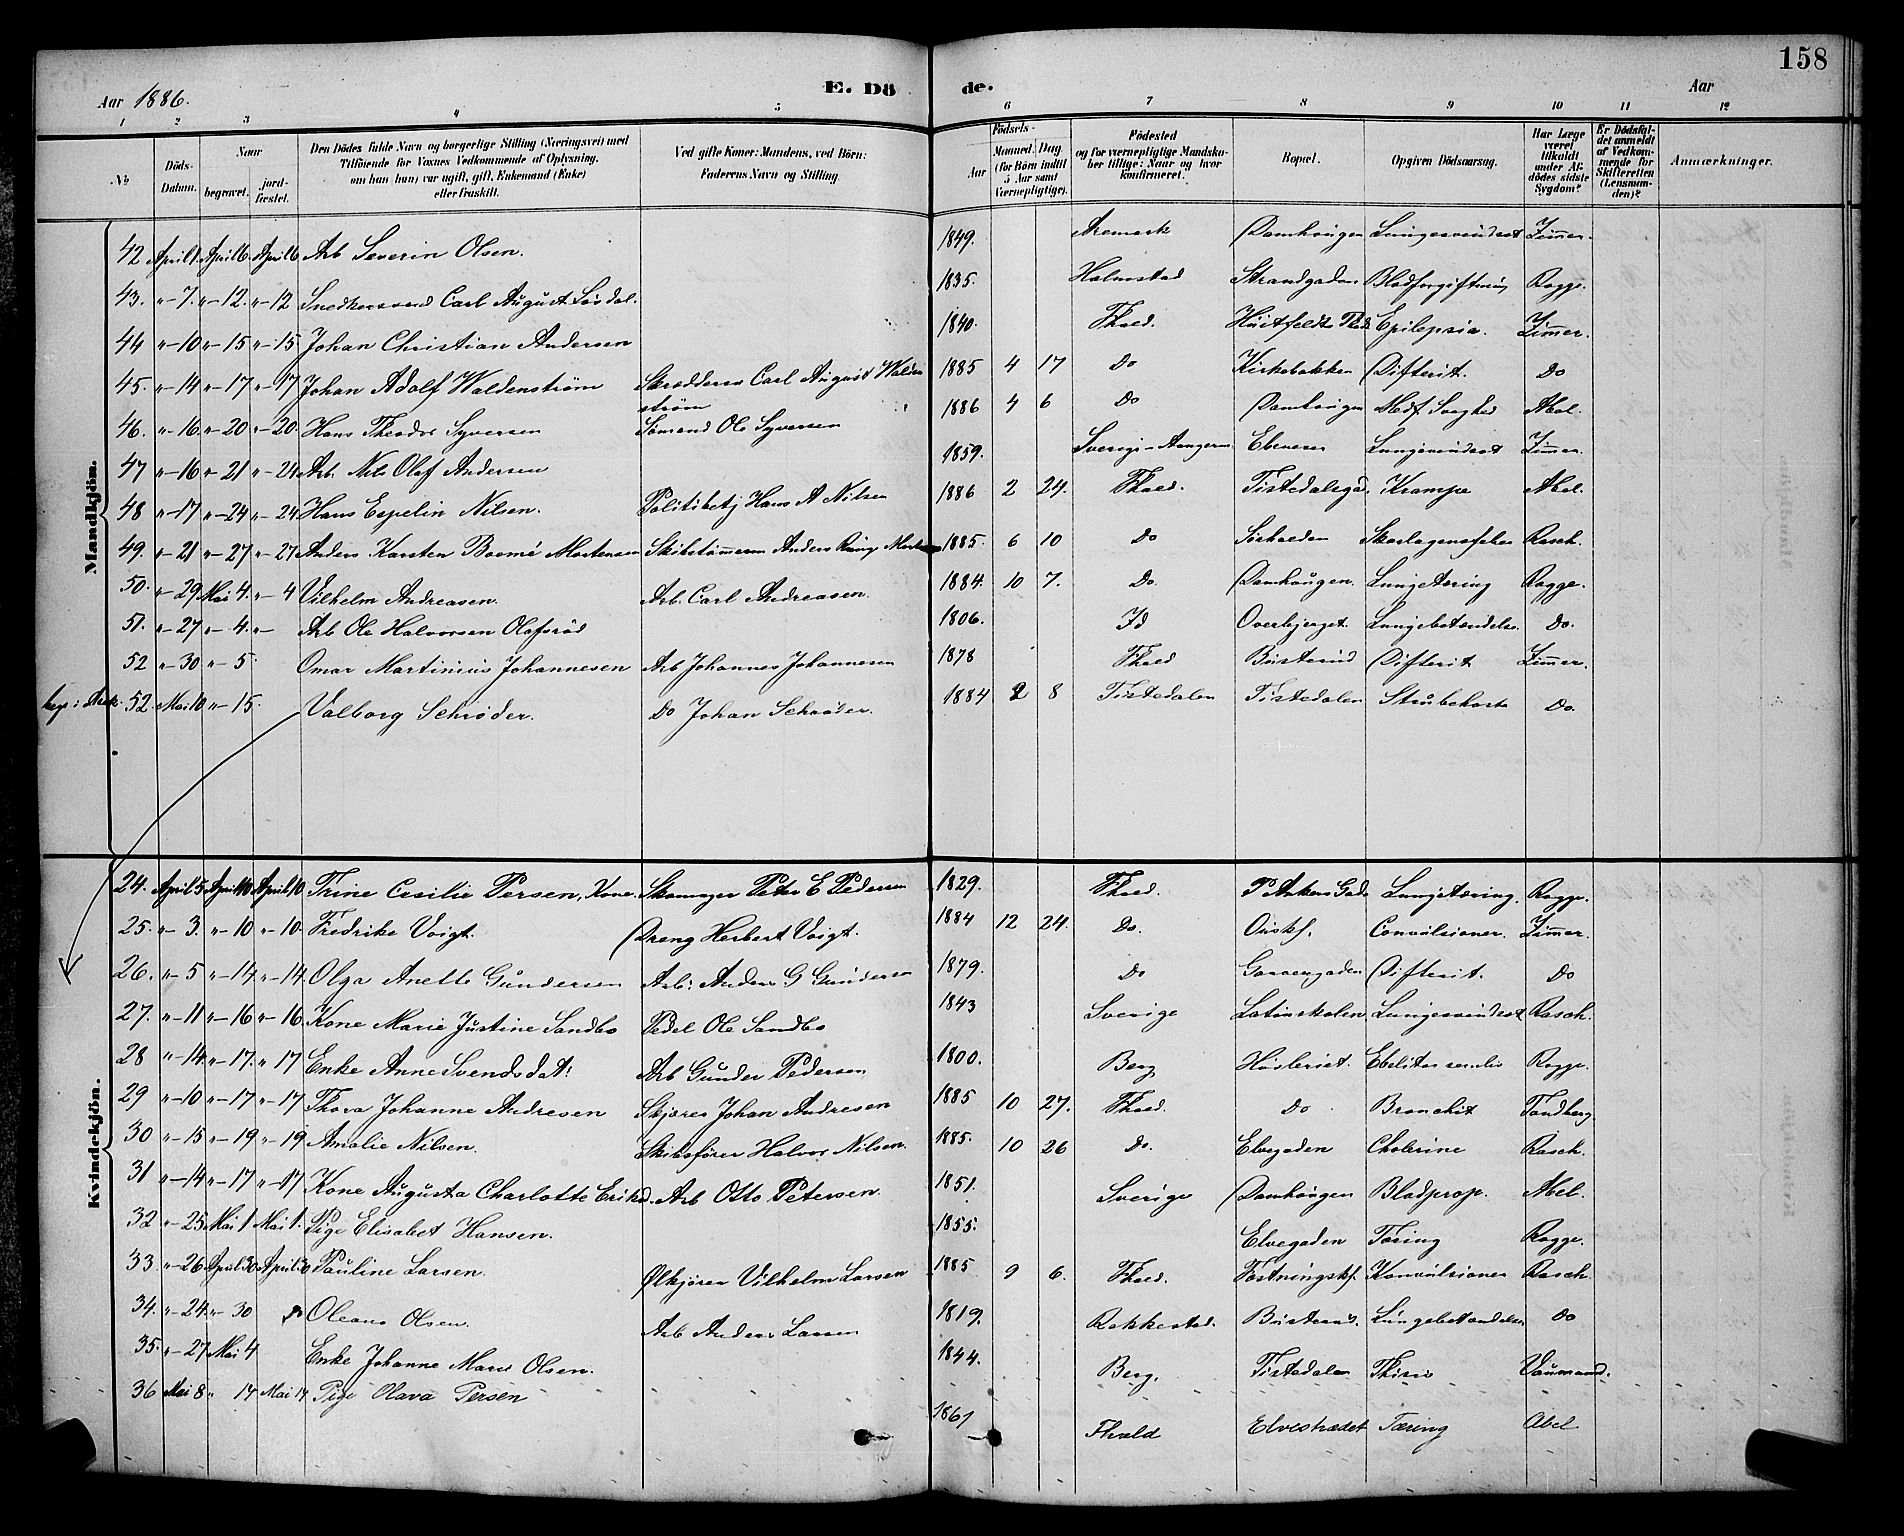 158
Aar 1886. E. Dö de. Aar
1 2 3 4 5 6 7 8 9 10 11 12
No
Döds-Datum.
Naar
begravet.
jord-fæstet.
Den Dödes fulde Navn og borgerlige Stilling (Næringsvei) med
Tilföiende for Voxnes Vedkommende af Oplysning,
om han (hun) var ugift, gift, Enkemand (Enke)
eller fraskilt.
Ved gifte Koner: Mandens, ved Börn:
Faderens Navn og Stilling
Födsels-
Aar
Maaned Dag
(for Börn indtil
5 Aar samt
Værnepligtige).
Födested
og for værnepligtige Mandska-
ber tillige: Naar og hvor
konfirmeret.
Bopæl.
Opgiven Dödsaarsag.
Har Læge
været
tilkaldt
under Af-
dödes sidste
Sygdom?
Er Dödsfal-
det anmeldt
af Vedkom-
mende for
Skifteretten
(Lensman-
den)?
Anmærkninger.
Mandkjön.
42 April 1 April 6 April 6 Arb Severin Olsen. 1849. Aremark Damhaugen Lungesvindsot Zimmer.
43. " - 7. " - 12. " - 12 Snedkersvend Carl August Lördal. 1835. Halmstad Strandgaden Blodforgiftning Rogge.
44 " - 10 " - 15 " - 15 Johan Christian Andersen 1840. Fhald. Huitfeldts Pl Epilepsia. Zimmer.
45. " - 14 " - 17 " - 17 Johan Adolf Waldenström Skrædderen Carl August Walden
ström 1885 4 17 Do Kirkebakken Difterit. Do
46. " - 16 " - 20 " - 20. Hans Theodor Syversen Sömand Ole Syversen 1886 4 6 Do Damhaugen Medf Svaghed Abel.
47 " - 16 " - 21 " - 21 Arb. Nils Olaf Andersen 1859. Sverige Ebeneser Lungesvindsot Zimmer.
48 " - 17 " - 24 " - 24 Hans Espelin Nilsen. Politibetj Hans A Nilsen 1886 2 24. Fhald. Tistedalsgd. Krampe Abel.
49. " - 21 " - 27 " - 27 Anders Karsten Mortensen Skibstömmerm Anders Ring Morten 1885. 6 10 Do Sörhalden Skarlagensfeber Rasch.
50. " - 29 Mai 4. " - 4 Vilhelm Andreasen. Arb. Carl Andreasen. 1884. 10 7. Do. Damhaugen. Lungetæring Rogge.
51. " - 27 " - 4. " - Arb Ole Halvorsen Olafsröd 1806. Id Overbjerget. Lungebetændelse. Do.
52 " - 30 " - 5. Omar Martinius Johannesen Arb Johannes Johannesen 1878 Fhald Busterud Difterit Zimmer.
52. Mai 10 " - 15. Valborg Schröder. Do Johan Schröder. 1884 2 8 Tistedalen Tistedalen Strubehoste Do.
Kvindekjön.
24. April 5 April 10 April 10. Trine Cecilie Persen, Kone. Skomager Peter E Pedersen 1829. Fhald. P Ankers Gade Lungetæring. Rogge.
25. " - 3. " - 10 " - 10. Fredrike Voigt. Dreng Herbert Voigt. 1884 12 24. Do. Convulsioner. Zimmer.
26. " - 5 " - 14 " - 14. Olga Anette Gundersen Arb: Anders G Gundersen 1879. Do Garvergaden Difterit. Do
27. " - 11 " - 16 " - 16 Kone Marie Justine Sandbo Pedel Ole Sandbo 1843 Sverige Latinskolen Lungesvindsot Rasch.
28 " - 14 " - 17. " 17 Enke Anne Svendsdat: Arb Gunder Pedersen 1800. Berg Höileriet. Ebilitas senilis Rogge.
29 " - 10 " - 17 " - 17 Thora Johanne Andresen Skjører Johan Andresen 1885 10 27. Fhald. Do Bronchit Tandberg
30 " - 15 " - 19 " - 19 Amalie Nilsen. Skibsförer Halvor Nilsen. 1885. 10 26 Do. Elvegaden Cholerine Rasch.
31 " - 14 " - 17 " - 17 Kone Augusta Charlotte Eriksd. Arb Otto Petersen. 1851. Sverige Damhaugen Blodprop. Abel.
32 " - 25 Mai 1 Mai 1. Pige Elisabet Hansen. 1855. Elvegaden Tæring Rogge.
33. " - 26 April 30 April 30 Pauline Larsen. Ölkjörer Vilhelm Larsen 1885 9 6. Fhald. Fæstningskf. Konvulsioner Rasch.
34. " - 24. " - 30 Oleane Olsen. Arb Anders Larsen 1819. Rakkestad. Busterud. Lungebetændelse Do
35. " - 27 Mai 4 Enke Johanne Marie Olsen. 1844. Berg. Tistedalen Thisis Vaumund.
36 Mai 8 " 14 Mai 14 Pige Olava Persen 1861 Fhald Elvestrædet Tæring Abel